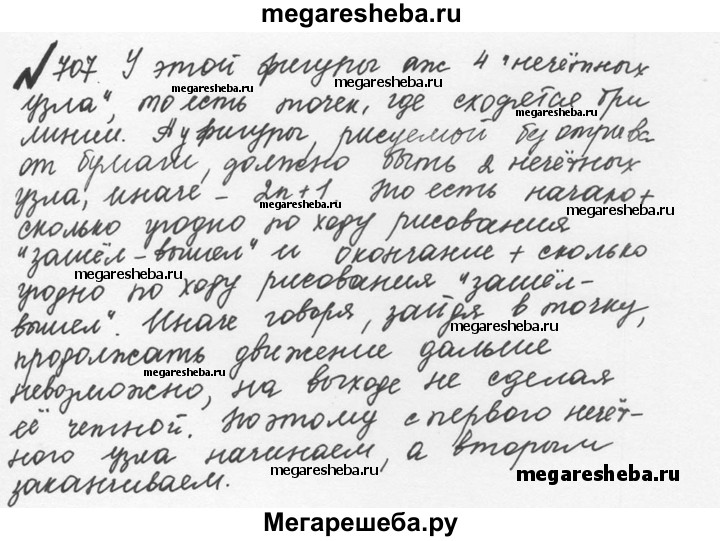 megaresheba.ru
№707. У этой фигуры аж 4 "нечётных
megaresheba.ru
megaresheba.ru
узла", то есть точек, где сходятся три
megaresheba.ru
линии. А у фигуры, рисуемой без отрыва
от бумаги, должно быть 2 нечётных
узла, иначе - 2n+1. То есть начало +
megaresheba.ru
megaresheba.ru
сколько угодно по ходу рисования
"зашёл-вышел" и окончание + сколько
megaresheba.ru
угодно по ходу рисования "зашёл-
вышел". Иначе говоря, зайдя в точку,
megaresheba.ru
продолжать движение дальше
невозможно, на выходе не сделая
её четной. Поэтому с первого нечёт-
megaresheba.ru
ного узла начинаем, а вторым
megaresheba.ru
заканчиваем.
megaresheba.ru
Мегарешеба.ру